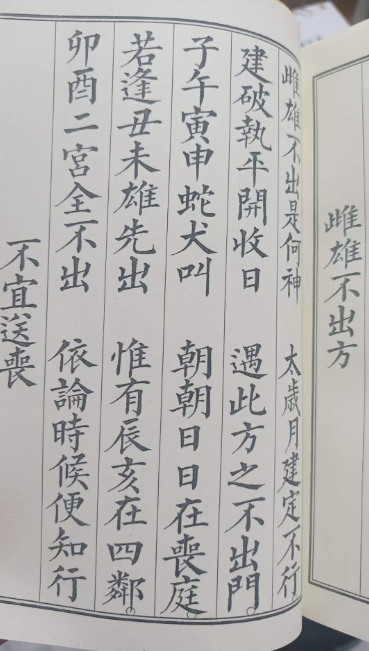 雌雄不出方
雌雄不出是何神　太歲月建定不行
建破執平開收日　遇此方之不出門
子午寅申蛇犬叫　朝朝日日在喪庭
若逢丑未雄先出　惟有辰亥在四鄰
卯酉二宮全不出　依論時候便知行
不宜送喪